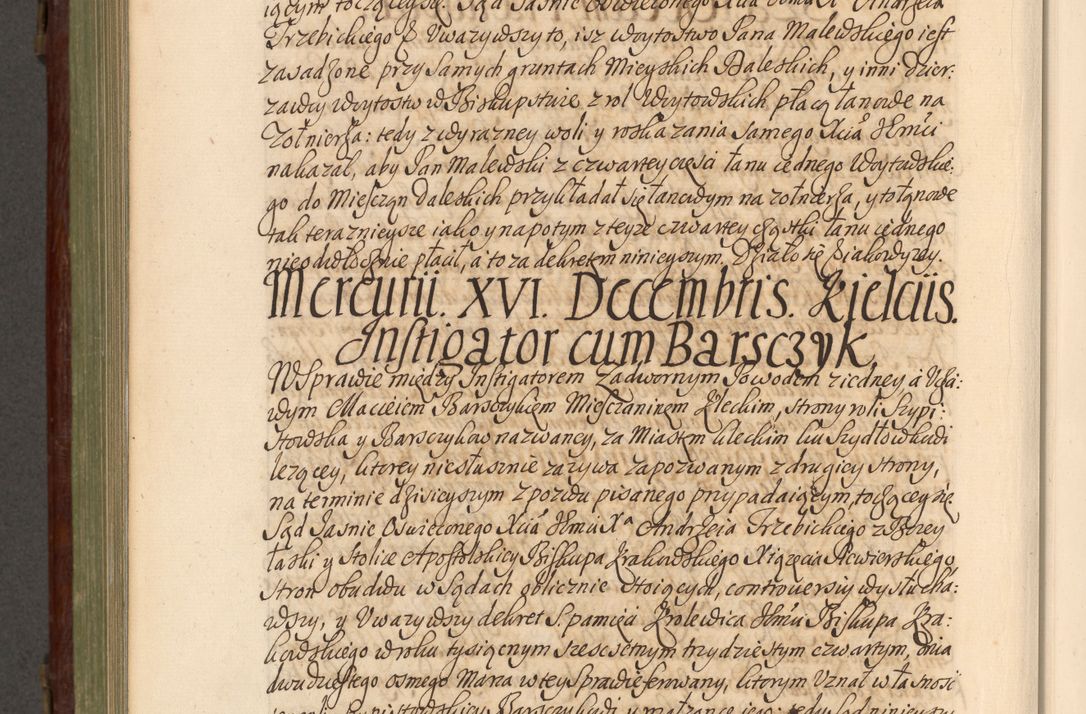 iącym toczącey się. Sąd Jasnie Oswieconego Xcia Jemu X Andrzeia
Trzebickiego & Uwazywszy to, isz woytostwo Pana Malewskiego iest
zasadzone przy samych gruntach Mieyskich Daleskich, y inni dzier:
zawcy woytostw w Biskupstwie z rol Woytowskich płacą łanowe na
Zołnierza: tedy z wyrazney woli y roskazania samego Xcia Jkmści
nakazał, aby Pan Malewski z czwartey części łanu iednego Woytowskie:
go do Miesczan Daleskich przykładał się łanowym na zołnierza, y to łanowe
tak teraznieysze iako y napotym z teyze czwartey cząstki łanu iednego
nieodwłocznie płacił, a to za dekretem ninieyszym. Działo się iako wyzey.
Mercurii. XVI. Decembris. Kielciis.
Instigator cum Barsczyk.
W Sprawie między Instigatorem Zadwornym Powodem z iedney a Ucza:
wym Macieiem Barsczykiem Miesczaninem Kleckim, strony roli Szypi:
stowska y Barsczykow nazwaney, za Miastem Kleckim ku Szydłowkadi
lezącey, ktorey niesłusznie zazywa zapozwanym z drugiey strony,
na terminie dzisieyszym z pozwu pisanego przypadaiącym, toczącey się
Sąd Jasnie Oswieconego Xcia Jkmu Xa Andrzeia Trzebickiego z Bozey
łaski y Stolice Apostolskiey Biskupa Krakowskiego Xiązęcia Siewierskiego
stron obudwu w Sądach oblicznie stoiących, controversiy wysłucha:
wszy, y Uwazywszy dekret S. pamięci Krolewica Jkmu Biskupa Kra:
kowskiego w roku tysiącnym szescsetnym trzydziestym czwartym, dnia
dwudziestego osmego Marca w tey Sprawie ferowany, ktorym Uznał własnosc